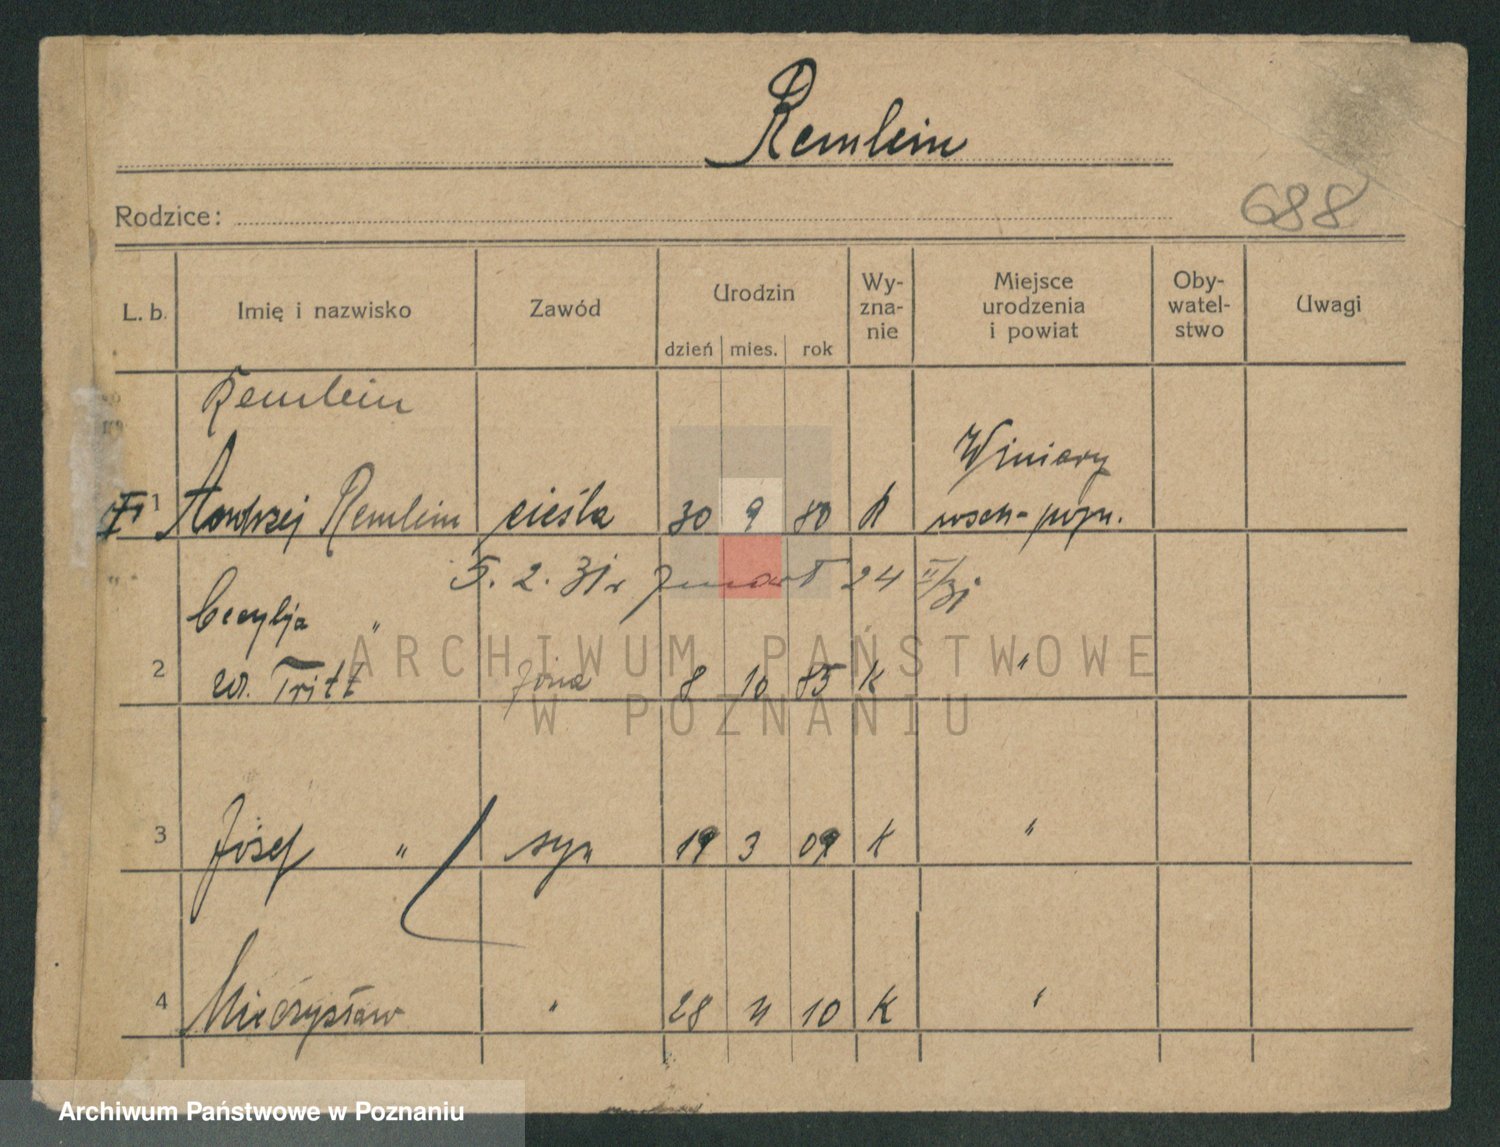 Remlein
Rodzice:
688
L. b. Imię i nazwisko Zawód Urodzin dzień mies. rok Wy-zna-nie Miejsce urodzenia i powiat Oby-watel-stwo Uwagi
Remlein
Winiary
1 Andrzej Remlein cieśla 30 9 80 K
5. 2. 31 r zmarł 24 II/31
Cecylja "
2 Tritt żona 8 10 85 K "
3 Józef " syn 19 3 09 K "
4 Mieczysław " 28 10 K "
ARCHIWUM PAŃSTWOWE
W POZNANIU
Archiwum Państwowe w Poznaniu